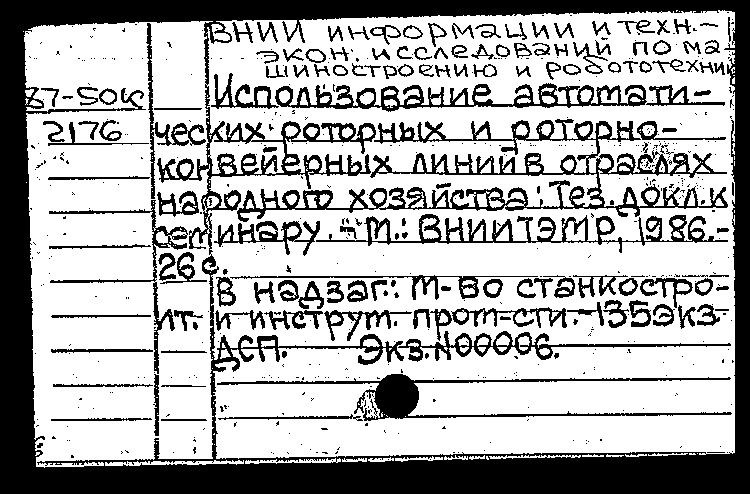 ВНИИ информации и техн.-
экон. исследований по ма-
шиностроению и робототехник
87-50к Использование автомати-
2176 ческих роторных и роторно-
конвейерных линий в отраслях
народного хозяйства: Тез. докл. к
семинару. - М.: ВНИИТЭМР, 1986.-
26 с.
В надзаг.: М-во станкостро-
ит. и инструт. пром-сти. - 135 экз
ДСП. Экз. N00006.